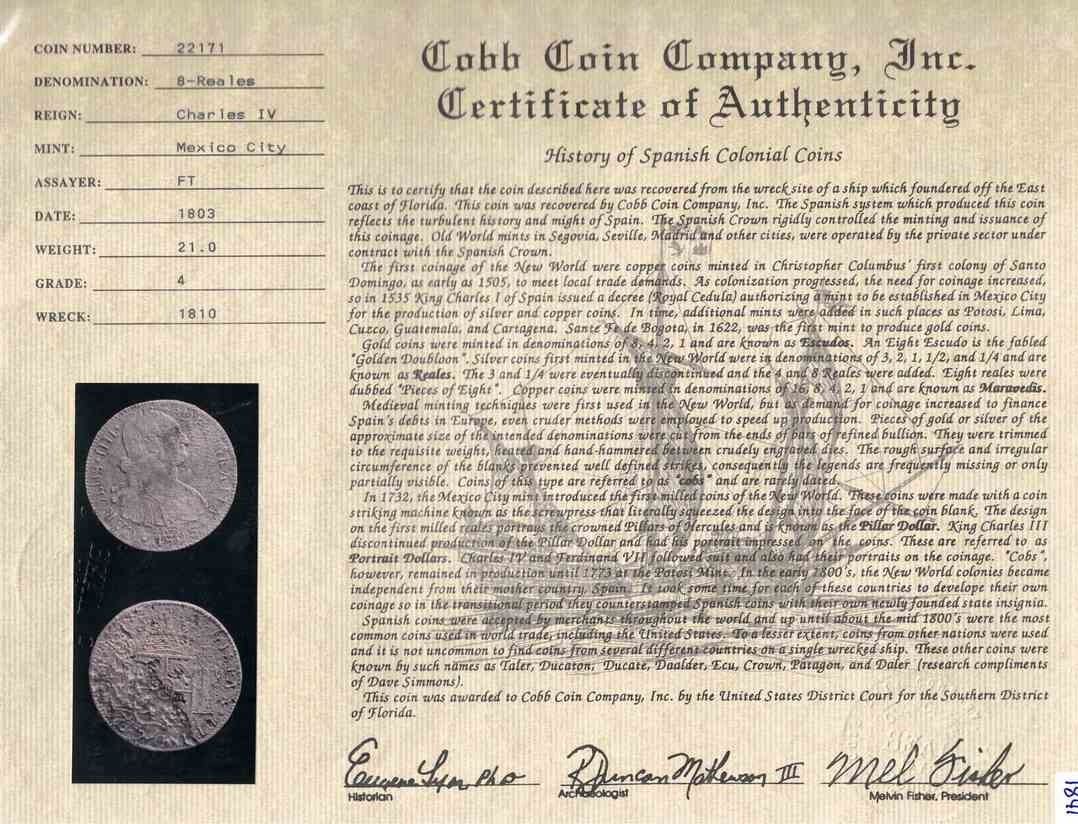 COIN NUMBER: 22171
DENOMINATION: 8-Reales
REIGN: Charles IV
MINT: Mexico City
ASSAYER: FT
DATE: 1803
WEIGHT: 21.0
GRADE: 4
WRECK: 1810
Cobb Coin Company, Inc.
Certificate of Authenticity
History of Spanish Colonial Coins
This is to certify that the coin described here was recovered from the wreck site of a ship which foundered off the East
coast of Florida. This coin was recovered by Cobb Coin Company, Inc. The Spanish system which produced this coin
reflects the turbulent history and might of Spain. The Spanish Crown rigidly controlled the minting and issuance of
this coinage. Old World mints in Segovia, Seville, Madrid and other cities, were operated by the private sector under
contract with the Spanish Crown.
The first coinage of the New World were copper coins minted in Christopher Columbus' first colony of Santo
Domingo, as early as 1505, to meet local trade demands. As colonization progressed, the need for coinage increased,
so in 1535 King Charles I of Spain issued a decree (Royal Cedula) authorizing a mint to be established in Mexico City
for the production of silver and copper coins. In time, additional mints were added in such places as Potosi, Lima,
Cuzco, Guatemala, and Cartagena. Sante Fe de Bogota, in 1622, was the first mint to produce gold coins.
Gold coins were minted in denominations of 8, 4, 2, 1 and are known as Escudos. An Eight Escudo is the fabled
"Golden Doubloon". Silver coins first minted in the New World were in denominations of 3, 2, 1, 1/2, and 1/4 and are
known as Reales. The 3 and 1/4 were eventually discontinued and the 4 and 8 Reales were added. Eight reales were
dubbed "Pieces of Eight". Copper coins were minted in denominations of 16, 8, 4, 2, 1 and are known as Maravedis.
Medieval minting techniques were first used in the New World, but as demand for coinage increased to finance
Spain's debts in Europe, even cruder methods were employed to speed up production. Pieces of gold or silver of the
approximate size of the intended denominations were cut from the ends of bars of refined bullion. They were trimmed
to the requisite weight, heated and hand-hammered between crudely engraved dies. The rough surface and irregular
circumference of the blanks prevented well defined strikes, consequently the legends are frequently missing or only
partially visible. Coins of this type are referred to as "cobs" and are rarely dated.
In 1732, the Mexico City mint introduced the first milled coins of the New World. These coins were made with a coin
striking machine known as the screwpress that literally squeezed the design into the face of the coin blank. The design
on the first milled reales portrays the crowned Pillars of Hercules and is known as the Pillar Dollar. King Charles III
discontinued production of the Pillar Dollar and had his portrait impressed on the coins. These are referred to as
Portrait Dollars. Charles IV and Ferdinand VII followed suit and also had their portraits on the coinage. "Cobs",
however, remained in production until 1773 at the Potosi Mint. In the early 1800's, the New World colonies became
independent from their mother country, Spain. It took some time for each of these countries to develope their own
coinage so in the transitional period they counterstamped Spanish coins with their own newly founded state insignia.
Spanish coins were accepted by merchants throughout the world and up until about the mid 1800's were the most
common coins used in world trade, including the United States. To a lesser extent, coins from other nations were used
and it is not uncommon to find coins from several different countries on a single wrecked ship. These other coins were
known by such names as Taler, Ducaton, Ducate, Daalder, Ecu, Crown, Patagon, and Daler (research compliments
of Dave Simmons).
This coin was awarded to Cobb Coin Company, Inc. by the United States District Court for the Southern District
of Florida.
Eugene Lyon PhD R Duncan Mathewson III Mel Fisher
Historian Archaeologist Melvin Fisher, President
1841